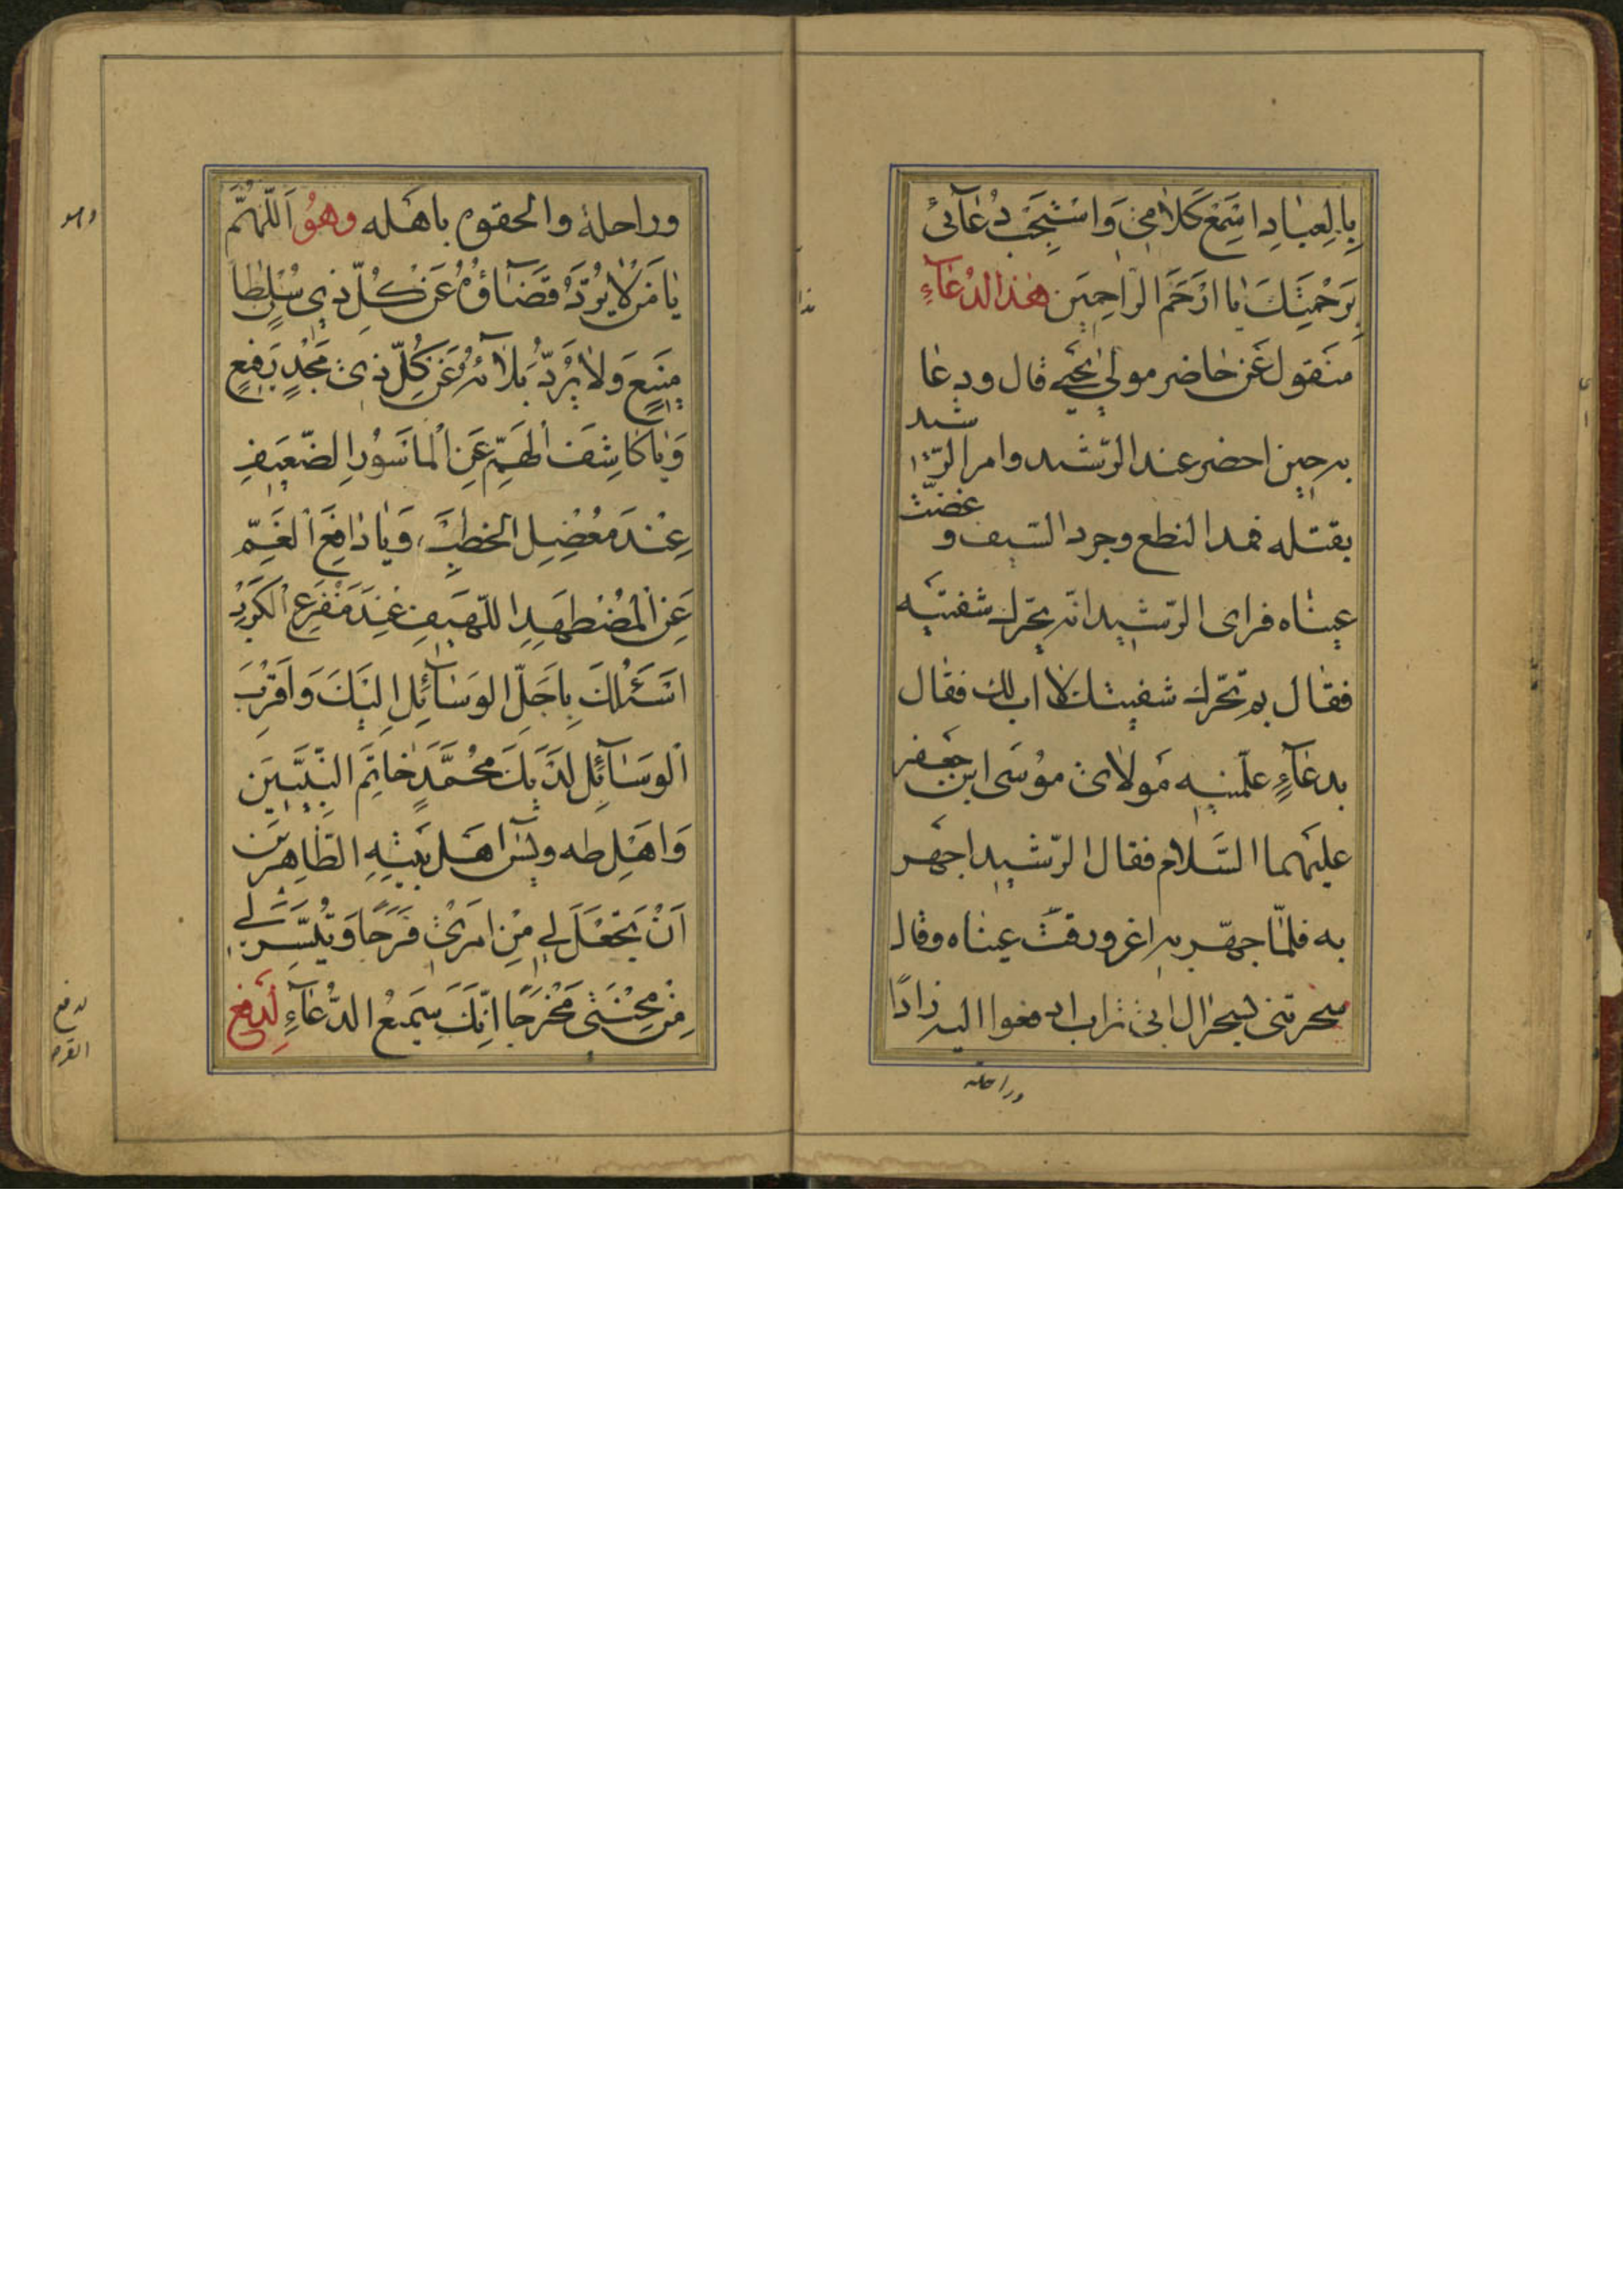 بِالعِبٰادِ اِسْمَعْ كَلٰامِىْ وَاسْتَجِبْ دُعٰآئىْ
بِرَحْمَتِكَ يٰا اَرْحَمَ الرّاحِمِيَن هٰذا الدُعٰآءِ
منقول عَن حٰاضر مولىٰ يحيٰى قال و دعٰا
به حين احضر عند الرّشيد وامر الرّشيد
بقتله فمد النطع وجرد السّيف و غضّت
عيناه فراى الرّشيد انّه يحّرك شفتيه
فقٰال بم تحّرك شفيتك لا اب لك فقٰال
بدعٰآءٍ علّمنيه مَولاىْ موُسَى ابن جَعفر
عليَهما السّلام فقال الرّشيد اجهَر
به فلمّا جهّر به اغرورقت عينٰاه وقال
سحرتنى بسحر ال ابى تراب ادفعوا اليه زادًا
وراحلة
وراحلة والحقوه باهَله وهوُ اَللّهُمَّ
يٰا مَنْ لٰا يُرَدُّ قَضٰآؤُهُ عَنْ كُلِّ ذِي سُلْطٰا
مَنيعٍ وَلٰا يُرَدُّ بَلٰآئهُ عَنْ كُلِّ ذىْ مَجْدٍ رَفيعٍ
وَيٰا كٰاشِفَ الهَمِّ عَنِ المٰاسُورِ الضّعيفِ
عِنْدَ مُعْضِلِ الخَطبِ وَيٰا دٰافِعَ الْغَمِّ
عَنِ الْمُضْطهَدِ اللّهيفِ عِنْدَ مَفْرَعِ الْكَرْبِ
اَسْئَلُكَ بِاَجَلِّ الوَسٰآئِلِ اِليْكَ وَاَقْرَبَ
الْوَسٰآئِلِ لَدَيكَ مُحمَّدٍ خٰاتِمَ النّبيّينَ
وَاهْلِ طه ويٰس اَهْل بَيْتِهِ الطّاهِرين
اَنْ تَجْعَلَ لي مِنْ امرَىْ فَرَجًا وَتُيَسِّرَ لي
مِنْ مِحْنَتىْ مَخْرَجًا اِنَّكَ سَميعُ الدُّعٰآءِ لِدَفع
وهو
لدفع